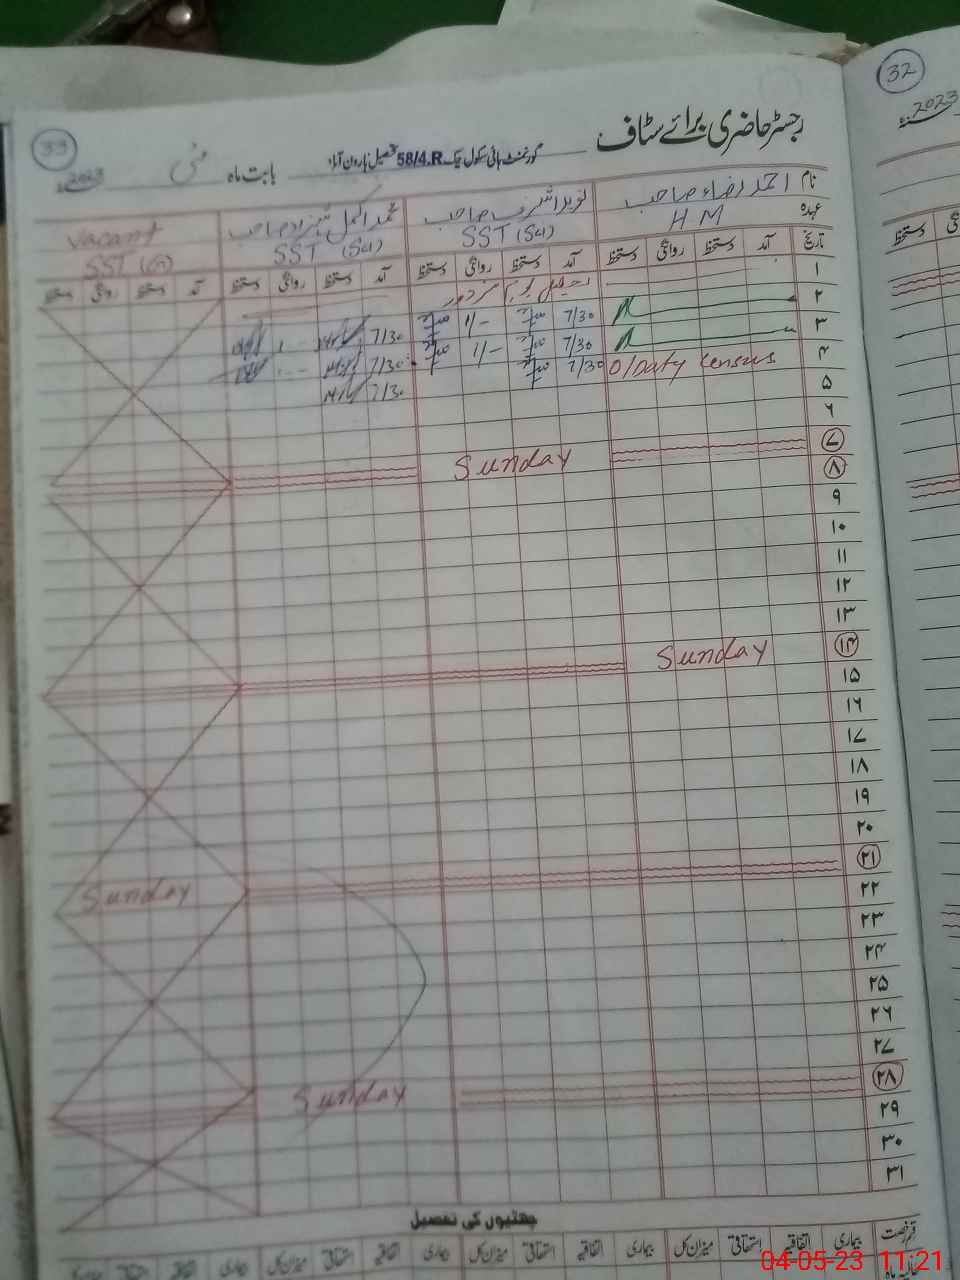 32
2023
33
رجسٹر حاضری برائے سٹاف
گورنمنٹ ہائی سکول چک 58/4.R تحصیل ہارون آباد
بابت ماہ مئی 2023ء
نام احمد رضاء صاحب نوید اشرف صاحب محمد اکمل شہزاد صاحب Vacant
عہدہ HM SST (Sci) SST (Sci) SST (G)
تاریخ آمد دستخط روانگی دستخط آمد دستخط روانگی دستخط آمد دستخط روانگی دستخط آمد دستخط روانگی دستخط
۱
۲ 7/30 1/- 7/30
۳ 7/30 1/- 7/30
۴ O/Duty Census 7/30 7/30
۵
۶
۷ Sunday
۸
۹
۱۰
۱۱
۱۲
۱۳
۱۴ Sunday
۱۵
۱۶
۱۷
۱۸
۱۹
۲۰
۲۱ Sunday
۲۲
۲۳
۲۴
۲۵
۲۶
۲۷
۲۸ Sunday
۲۹
۳۰
۳۱
چھٹیوں کی تفصیل
قسم رخصت بیماری اتفاقیہ استحقاقی میزان کل بیماری اتفاقیہ استحقاقی میزان کل بیماری اتفاقیہ استحقاقی میزان کل بیماری اتفاقیہ استحقاقی
04-05-23 11:21